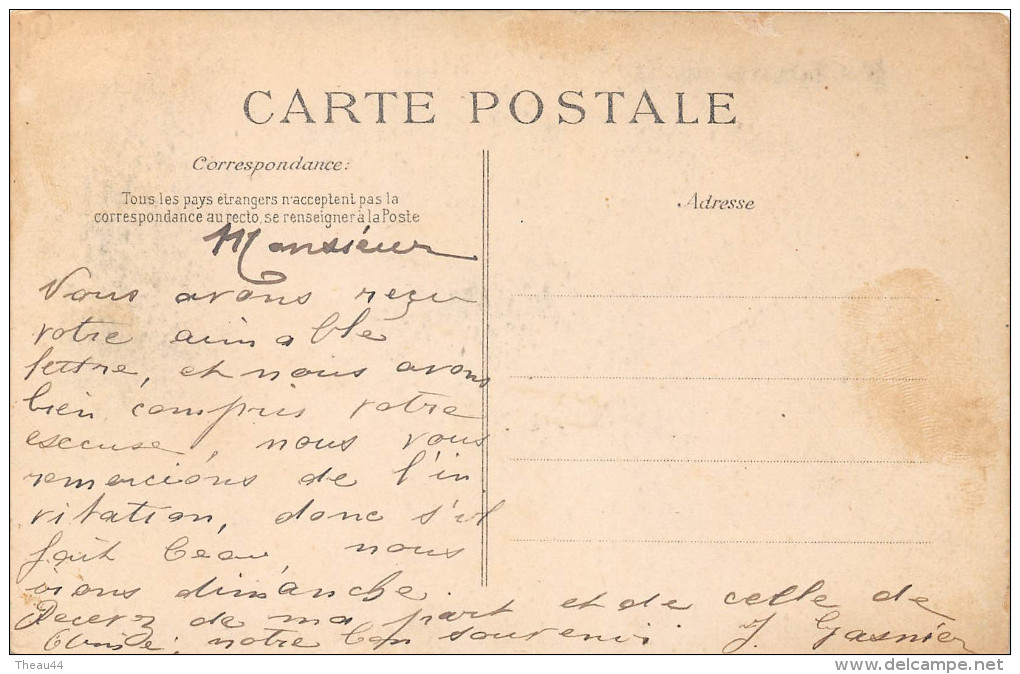 CARTE POSTALE
Correspondance:
Tous les pays étrangers n'acceptent pas la
correspondance au recto, se renseigner à la Poste
Adresse
Monsieur
Vous avons reçu
votre aimable
lettre, et nous avons
bien compris votre
esccuse, nous vous
remercions de l'in
vitation, donc s'il
fait beau nous
irons dimanche.
Recevez de ma part et de celle de
notre bon souvenir. J. Gasnier
Theau44
delcampe.net